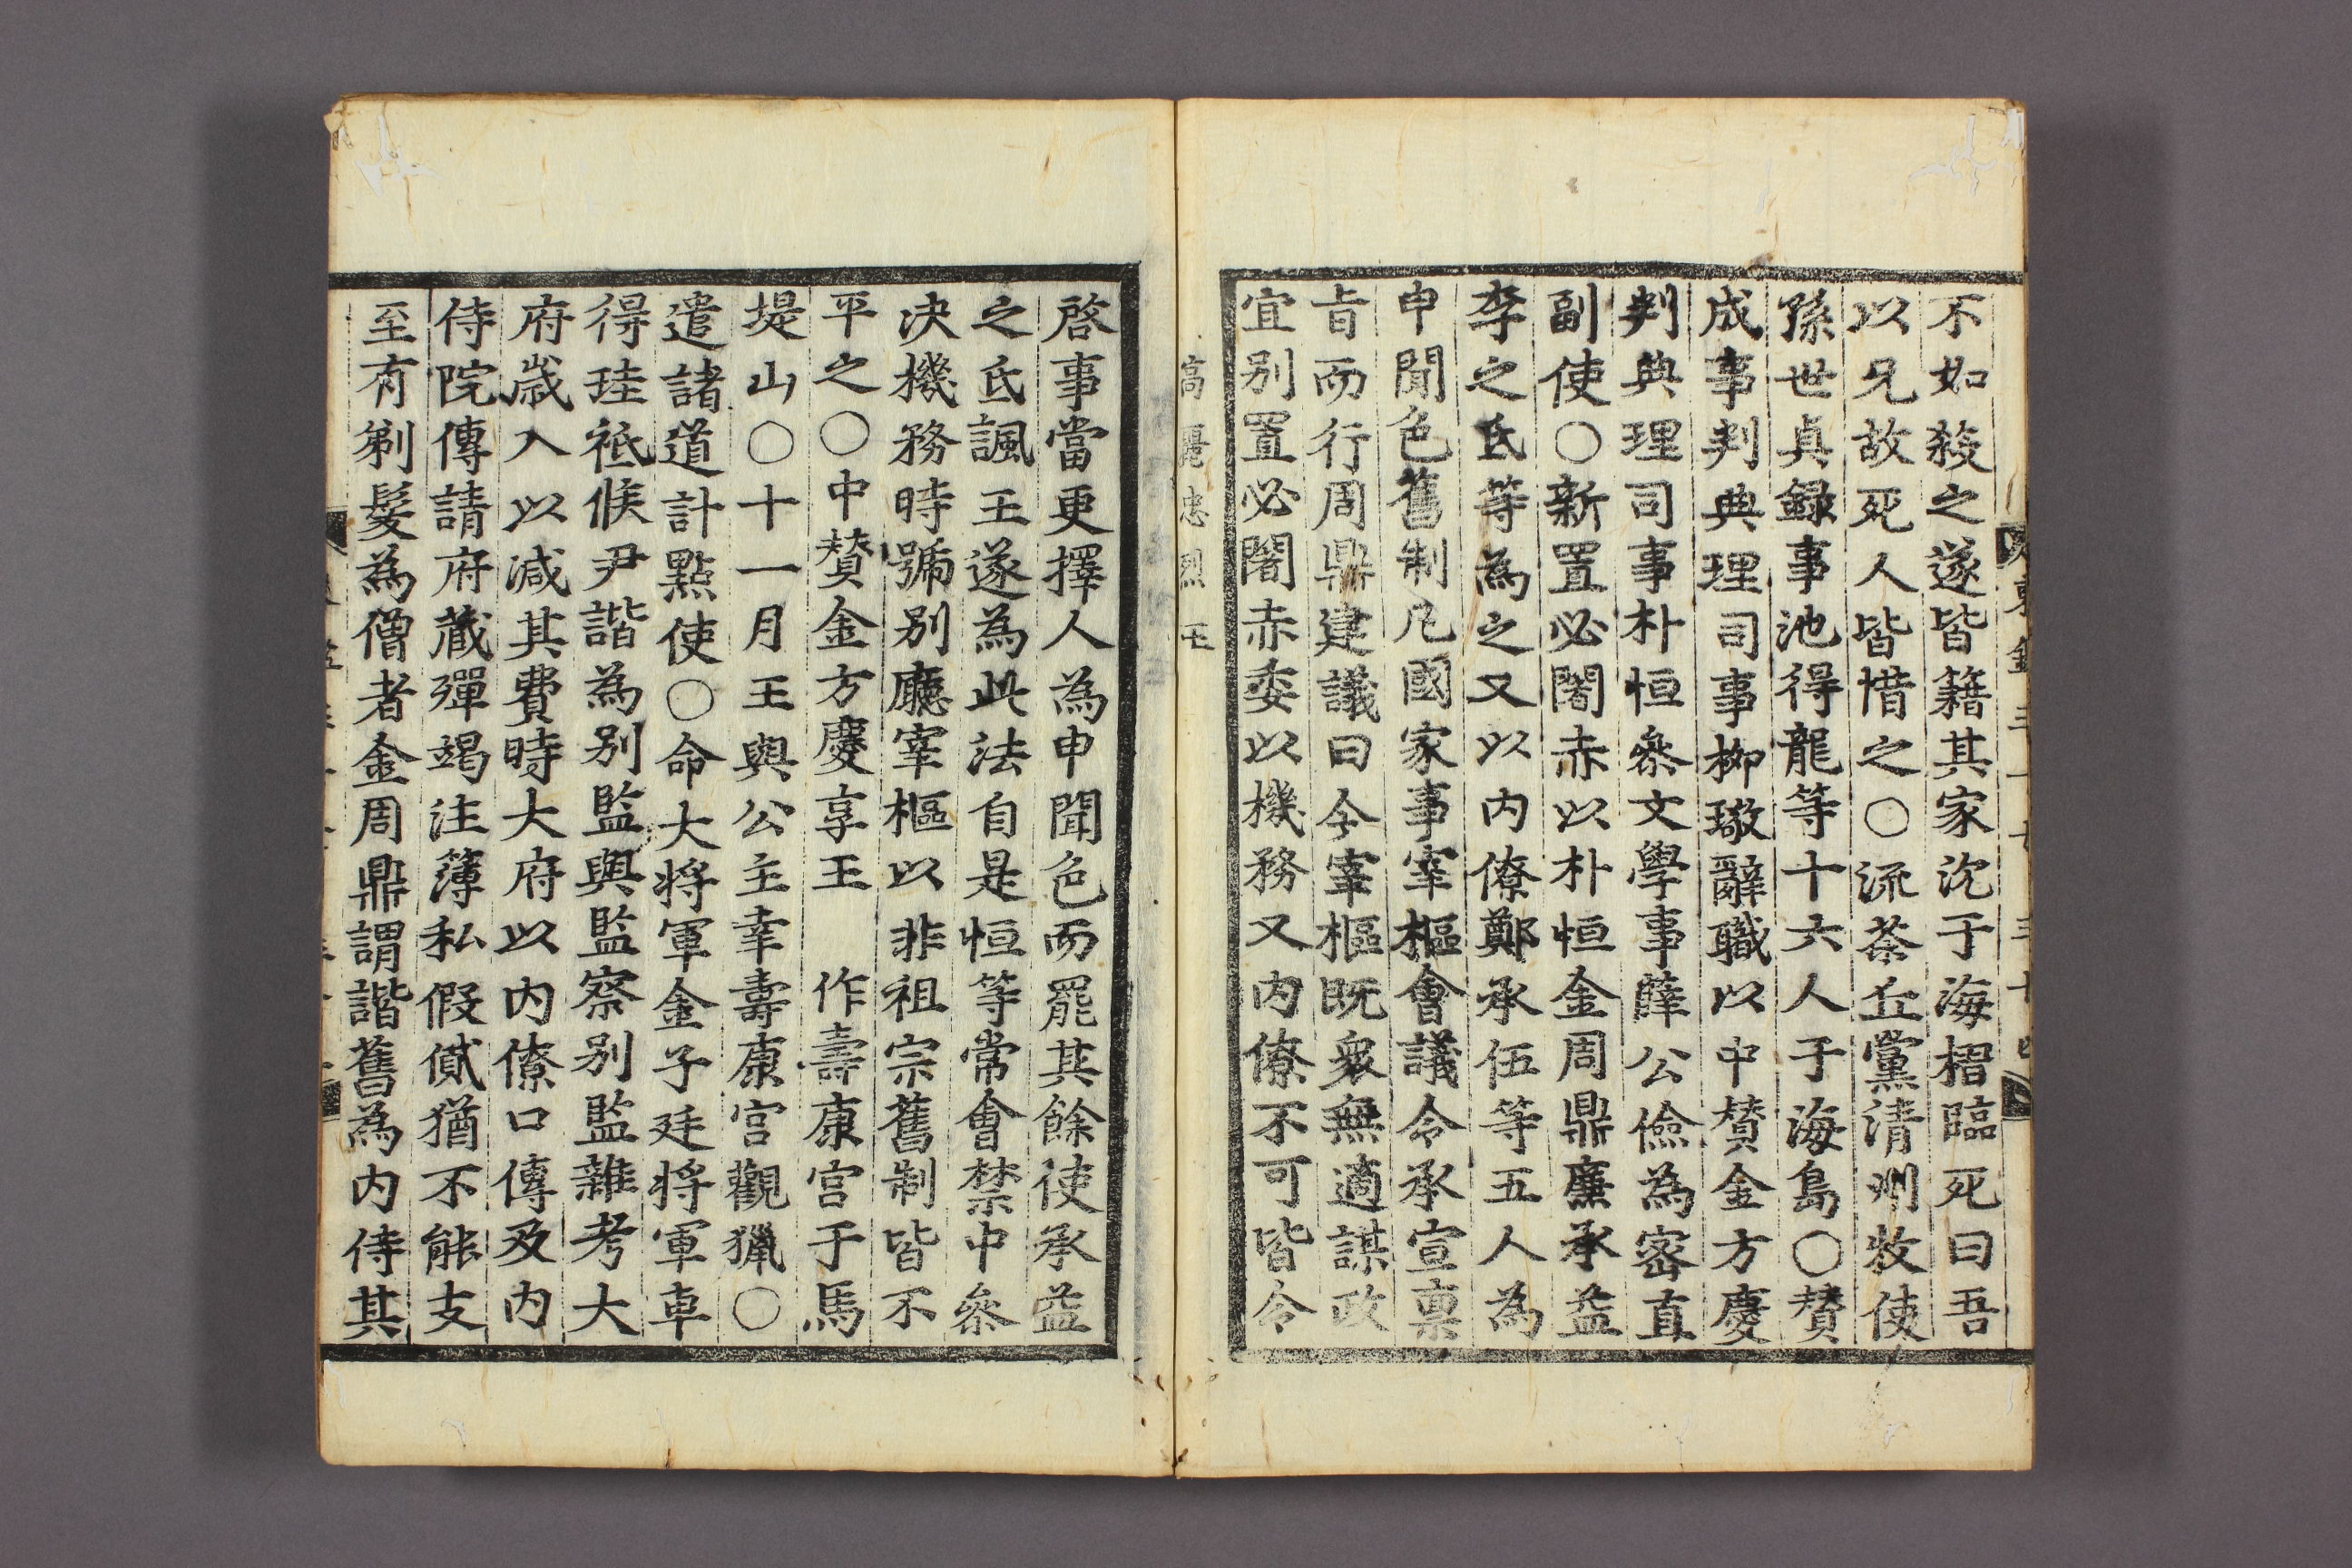 不如殺之遂皆籍其家沈于海槢臨死曰吾
以兄故死人皆惜之○流荼丘黨清州牧使
孫世貞録事池得龍等十六人于海島○賛
成事判典理司事柳璥辭職以中賛金方慶
判典理司事朴恒叅文學事薛公儉為密直
副使○新置必闍赤以朴恒金周鼎廉承益
李之氐等為之又以内僚鄭承伍等五人為
申聞色舊制凡國家事宰樞會議令承宣禀
旨而行周鼎建議曰今宰樞既衆無適謀政
宜别置必闍赤委以機務又内僚不可皆令
高麗忠烈王
啓事當更擇人為申聞色而罷其餘使承益
之氐諷王遂為此法自是恒等常會禁中叅
决機務時號别廳宰樞以非祖宗舊制皆不
平之○中賛金方慶享王 作壽康宫于馬
堤山○十一月王與公主幸壽康宫觀獵○
遣諸道計點使○命大将軍金子廷将軍車
得珪祗候尹諧為别監與監察别監雜考大
府歳入以减其費時大府以内僚口傳及内
侍院傳請府藏殫竭注簿私假貸猶不能支
至有剃髮為僧者金周鼎謂諧舊為内侍其